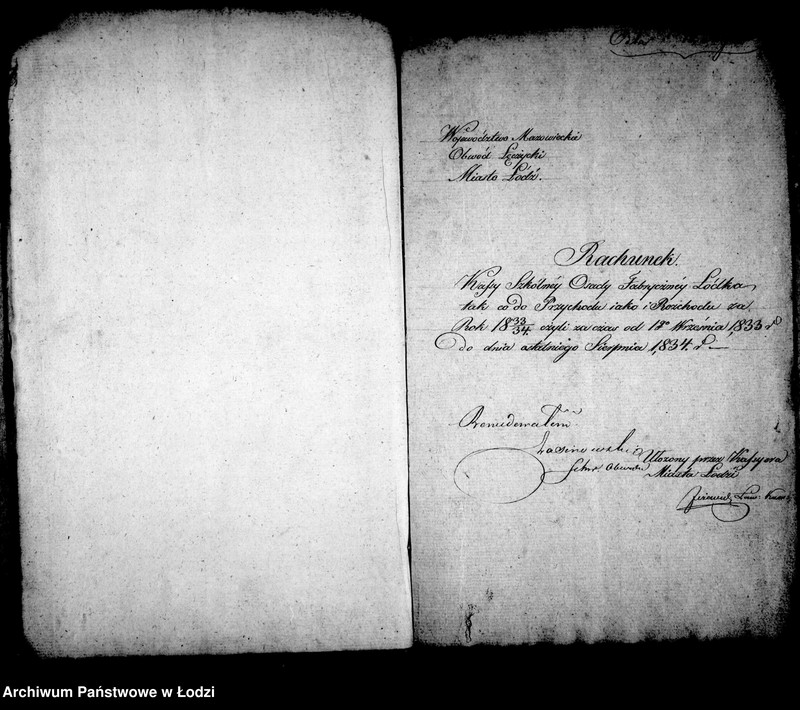 Województwo Mazowieckie
Obwód Łęczycki
Miasto Łódź.
Rachunek
Kassy Szkólnéy Osady Fabrycznéy Łódka
tak co do Przychodu iako i Rozchodu za
Rok 1833/34. czyli za czas od 1go Wrzesnia 1833 r
do dnia ostatniego Sierpnia 1834. r
Rewidowałem
Sekr. Obwodu
Ułożony przez Kassyera
Miasta Łodzi
Archiwum Państwowe w Łodzi